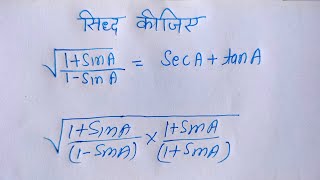 सिध्द कीजिए
√(1+SinA / 1-SinA) = SecA + tanA
√(1+SinA / (1-SinA) × 1+SinA / (1+SinA))